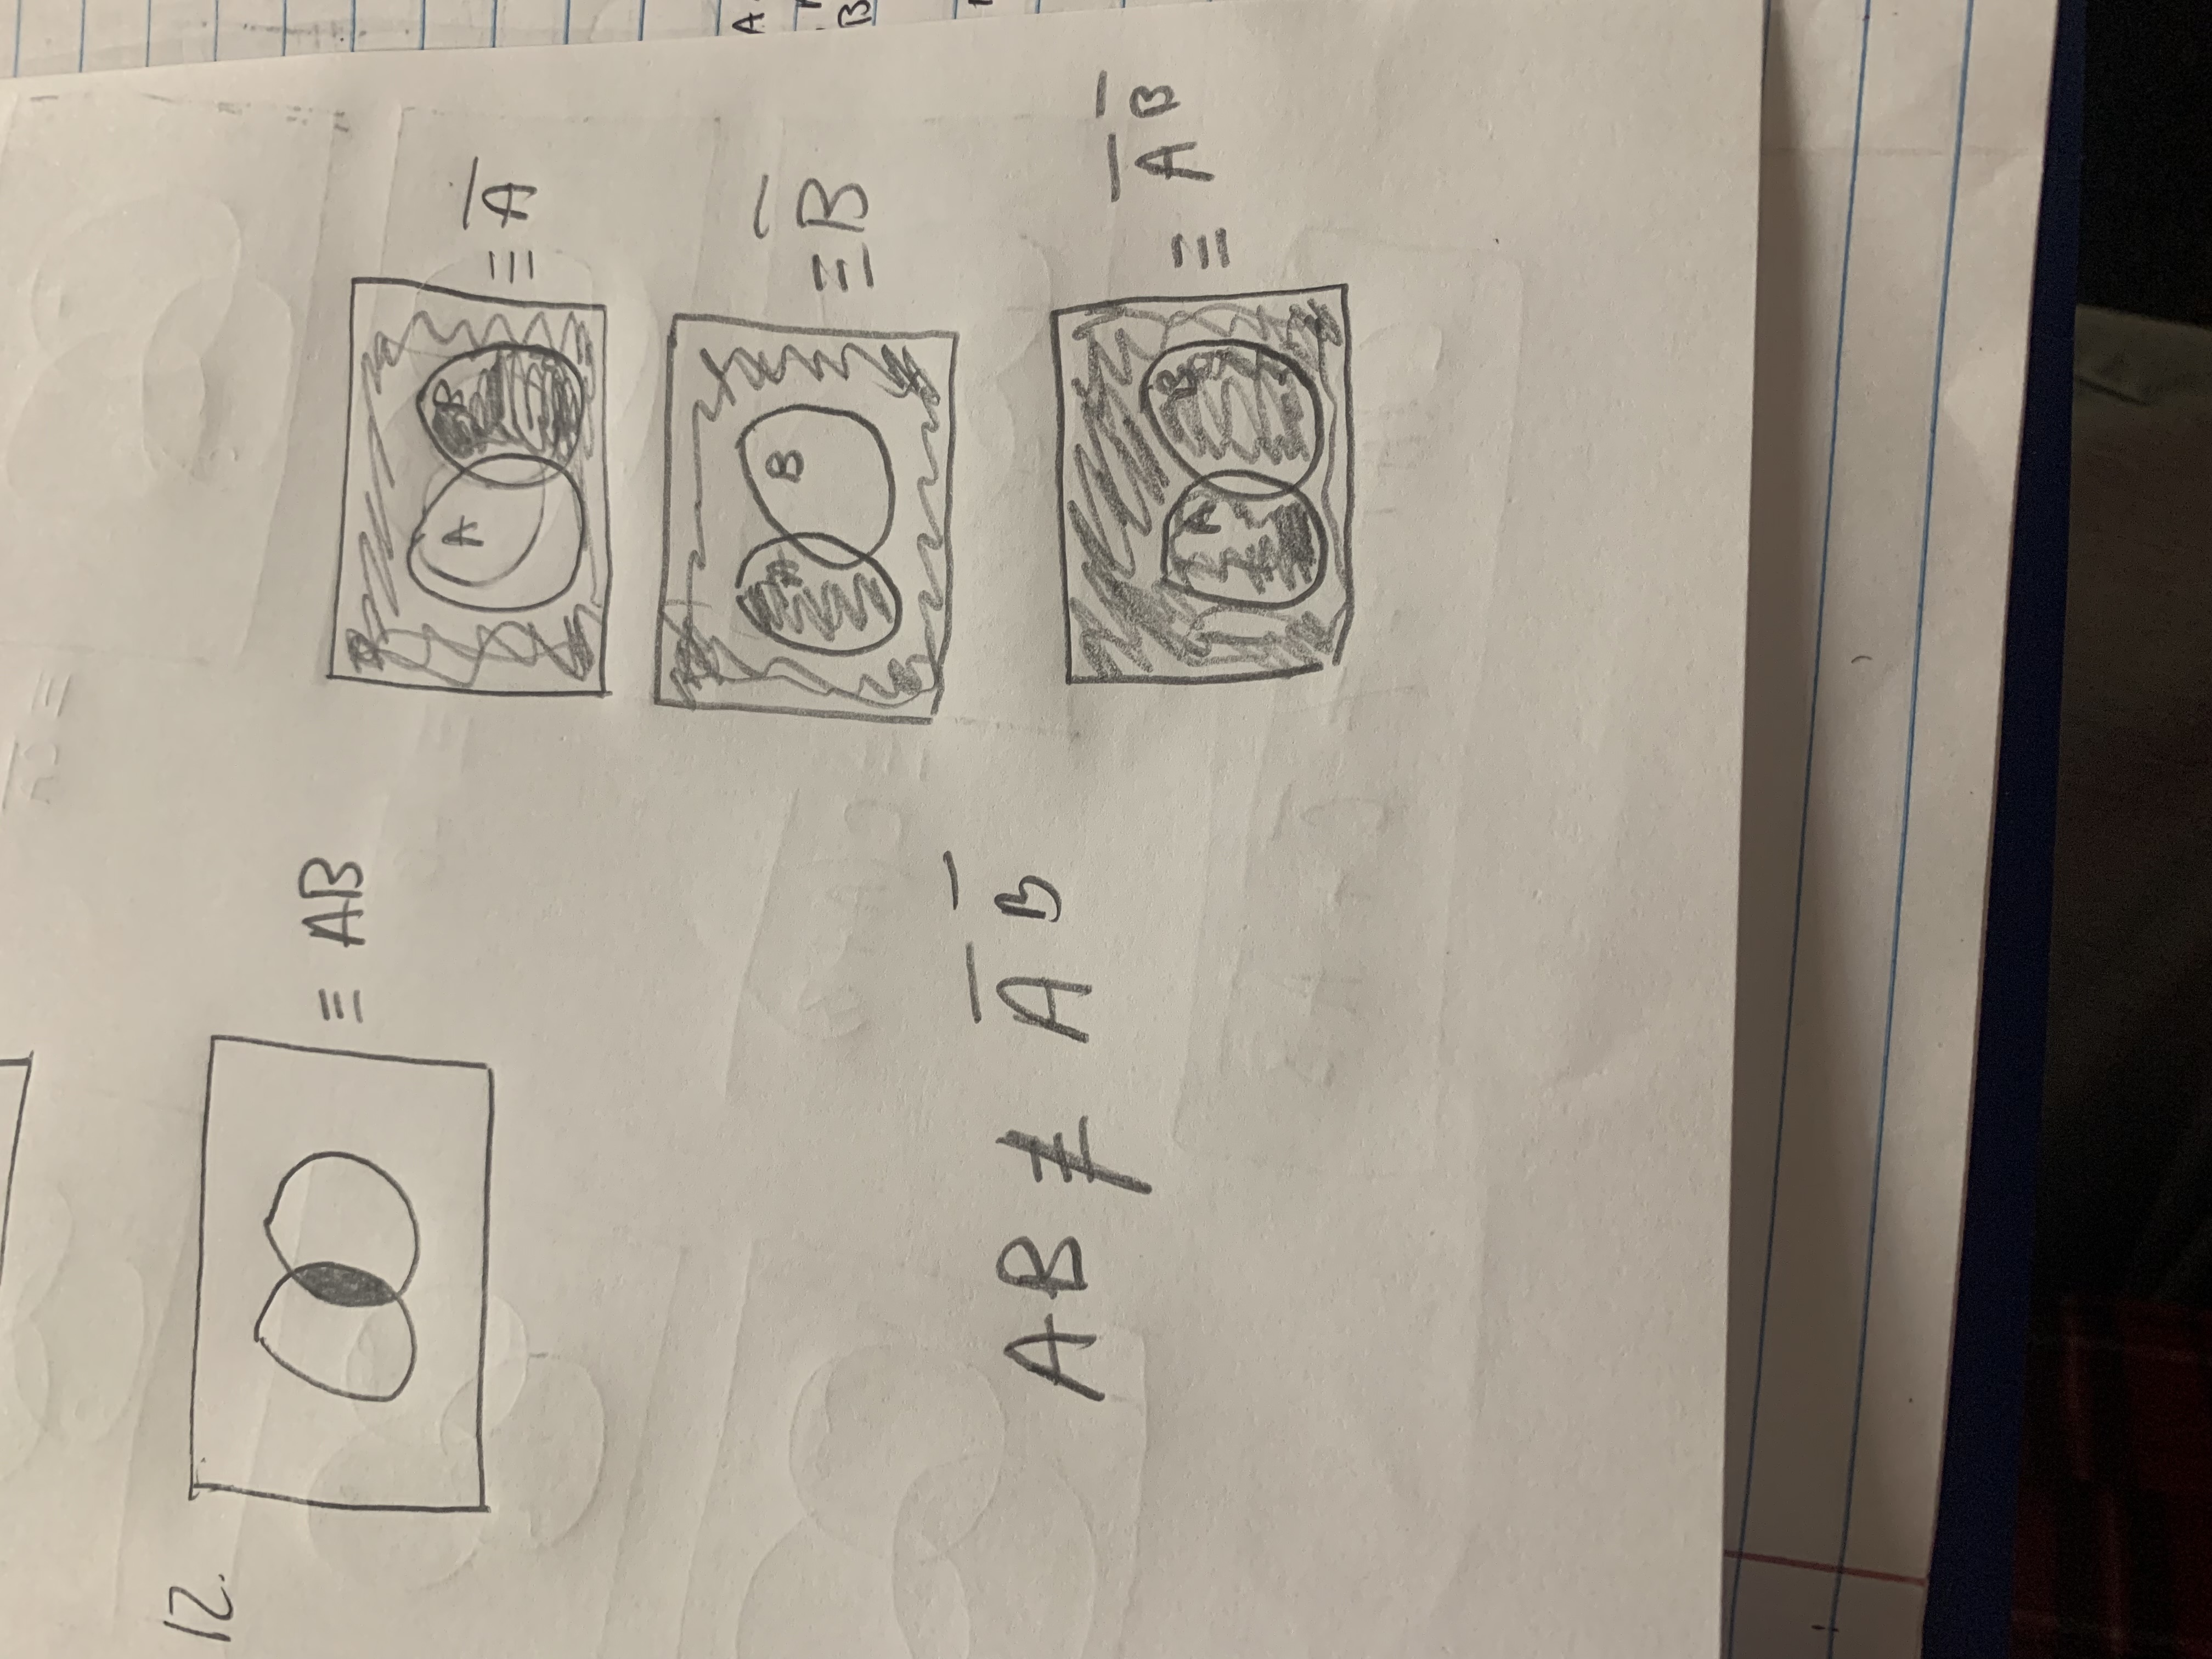 12.
≡ AB
A B
≡ A̅
A B
≡ B̅
AB ≢ A̅ B̅
A B
≡ A̅ B̅
A
B